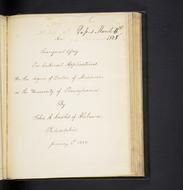 Passed March 6th
1828
An
Inaugural Essay
On External Applications
For the degree of Doctor of Medicine
at the University of Pennsylvania
By
John A. of Alabama
Philadelphia
January 5th